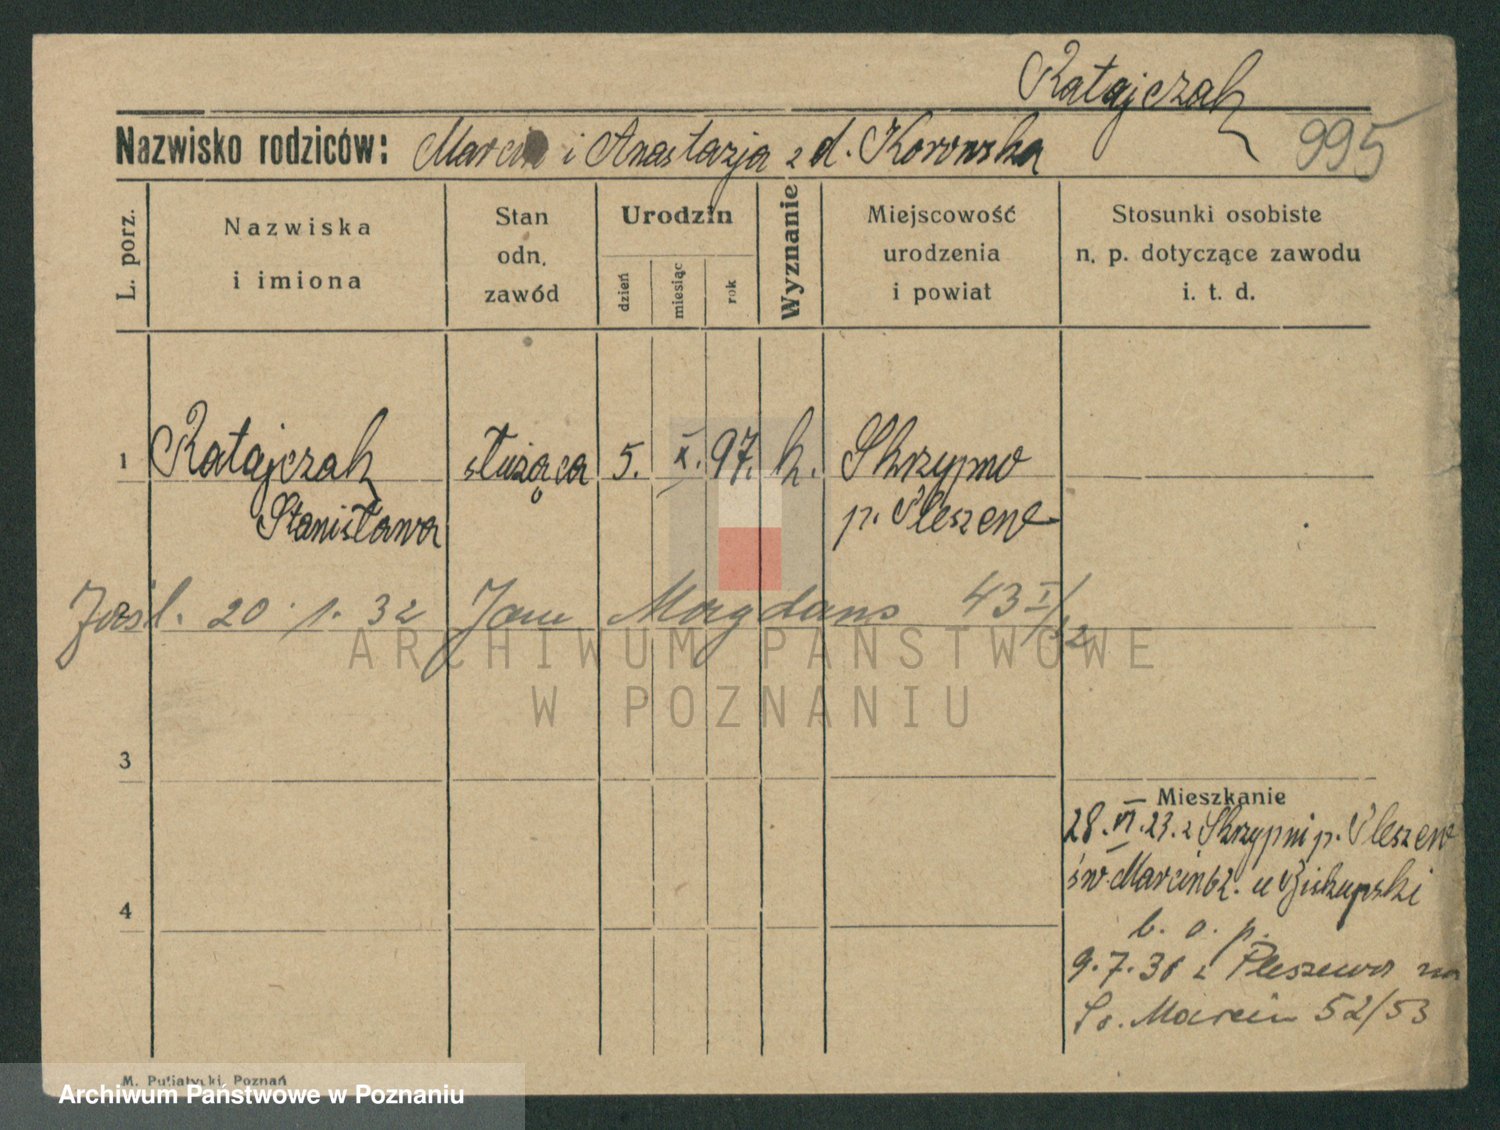 Ratajczak
Nazwisko rodziców: Marcin i Anastazja z d. Korowska
995
L. porz.
Nazwiska
i imiona
Stan
odn.
zawód
Urodzin
dzień
miesiąc
rok
Wyznanie
Miejscowość
urodzenia
i powiat
Stosunki osobiste
n. p. dotyczące zawodu
i. t. d.
1 Ratajczak służąca 5. X. 97. k. Skrzypno
Stanisława p. Pleszew
2
20. 1. 32 Jan Magdans 43 I/32
ARCHIWUM PAŃSTWOWE
W POZNANIU
3
Mieszkanie
28. VI. 23. z Skrzypni p. Pleszew
św. Marcin 62. u Biskupski
4
b. o. p.
9.7.31 z Pleszewa na
Św. Marcin 52/53
M. Putiatycki, Poznań
Archiwum Państwowe w Poznaniu